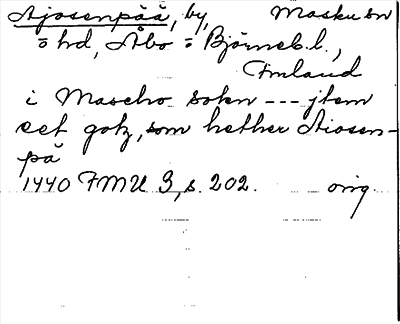 Ajosenpää, by, Masku sn
o hd, Åbo o Björneb. l.,
Finland
i Mascho sokn --- jtem
eet gotz, som hether Aiosen-
på
1440 FMU 3, s. 202. orig.